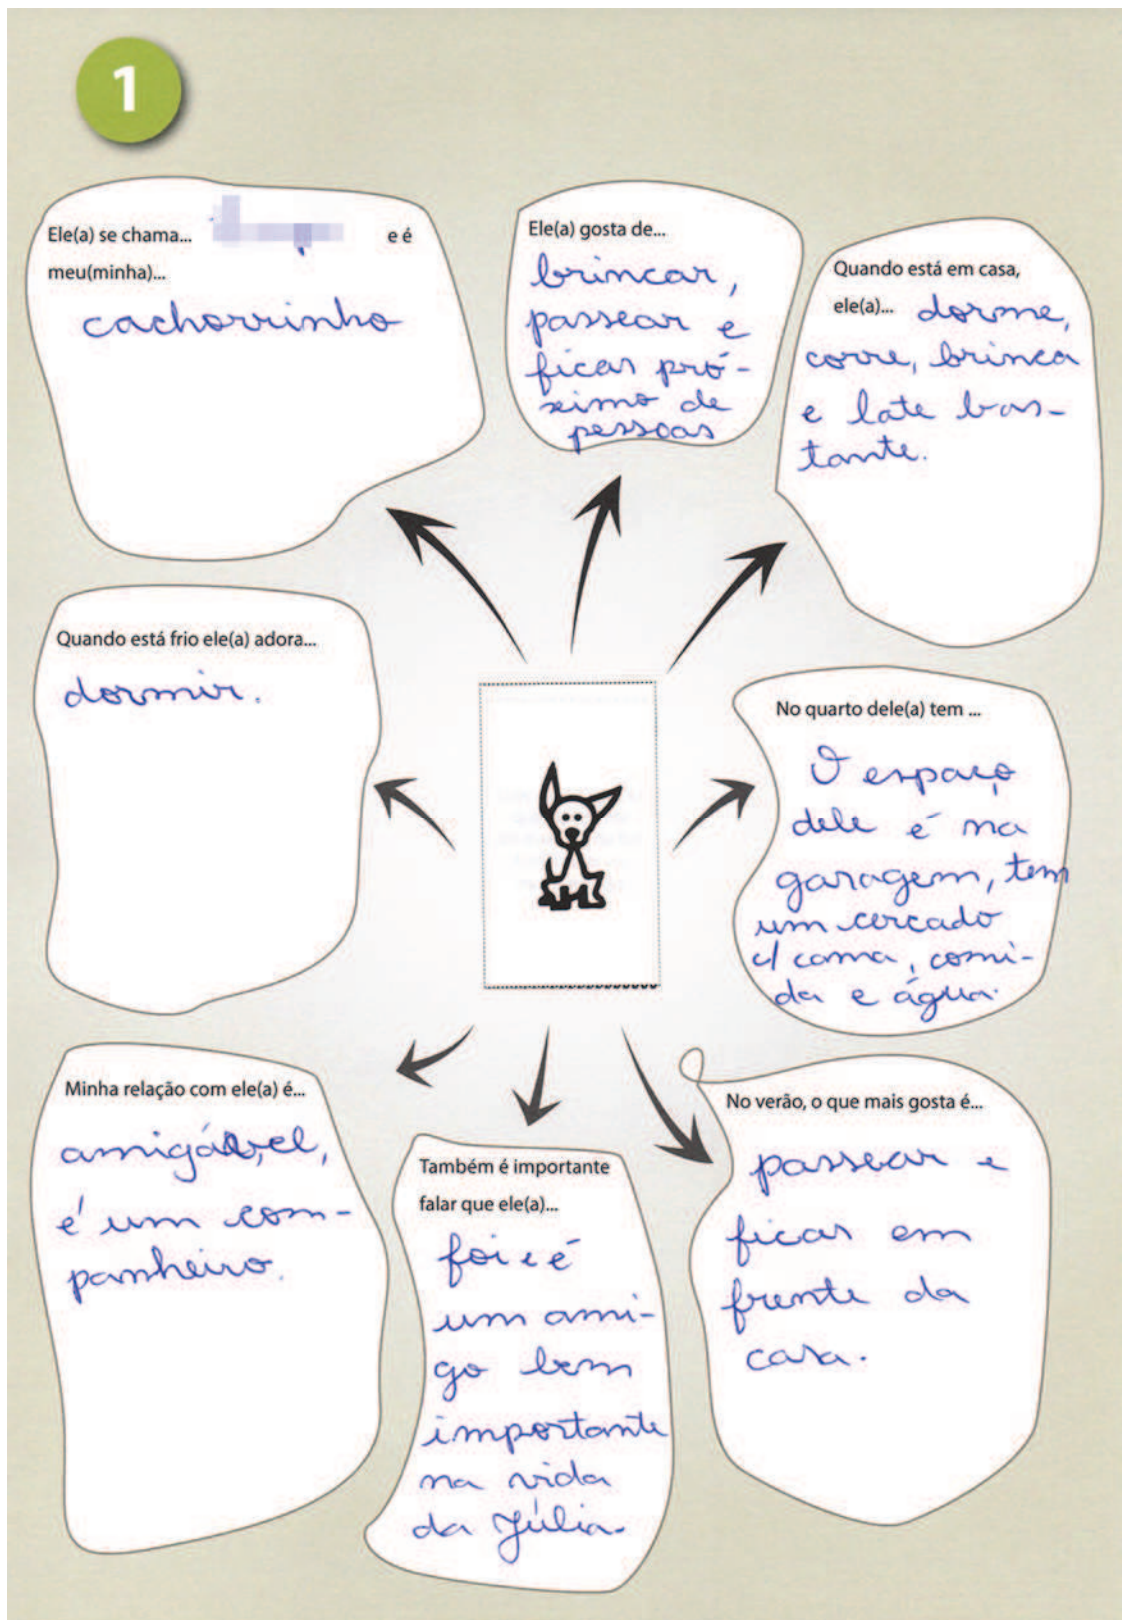 1
Ele(a) se chama... e é
meu(minha)...
cachorrinho
Ele(a) gosta de...
brincar,
passear e
ficar pró-
ximo de
pessoas
Quando está em casa,
ele(a)... dorme,
corre, brinca
e late bas-
tante.
Quando está frio ele(a) adora...
dormir.
No quarto dele(a) tem ...
O espaço
dele é na
garagem, tem
um cercado
c/ cama, comi-
da e água.
Minha relação com ele(a) é...
amigável,
é um com-
panheiro.
Também é importante
falar que ele(a)...
foi e é
um ami-
go bem
importante
na vida
da Júlia.
No verão, o que mais gosta é...
passear e
ficar em
frente da
casa.